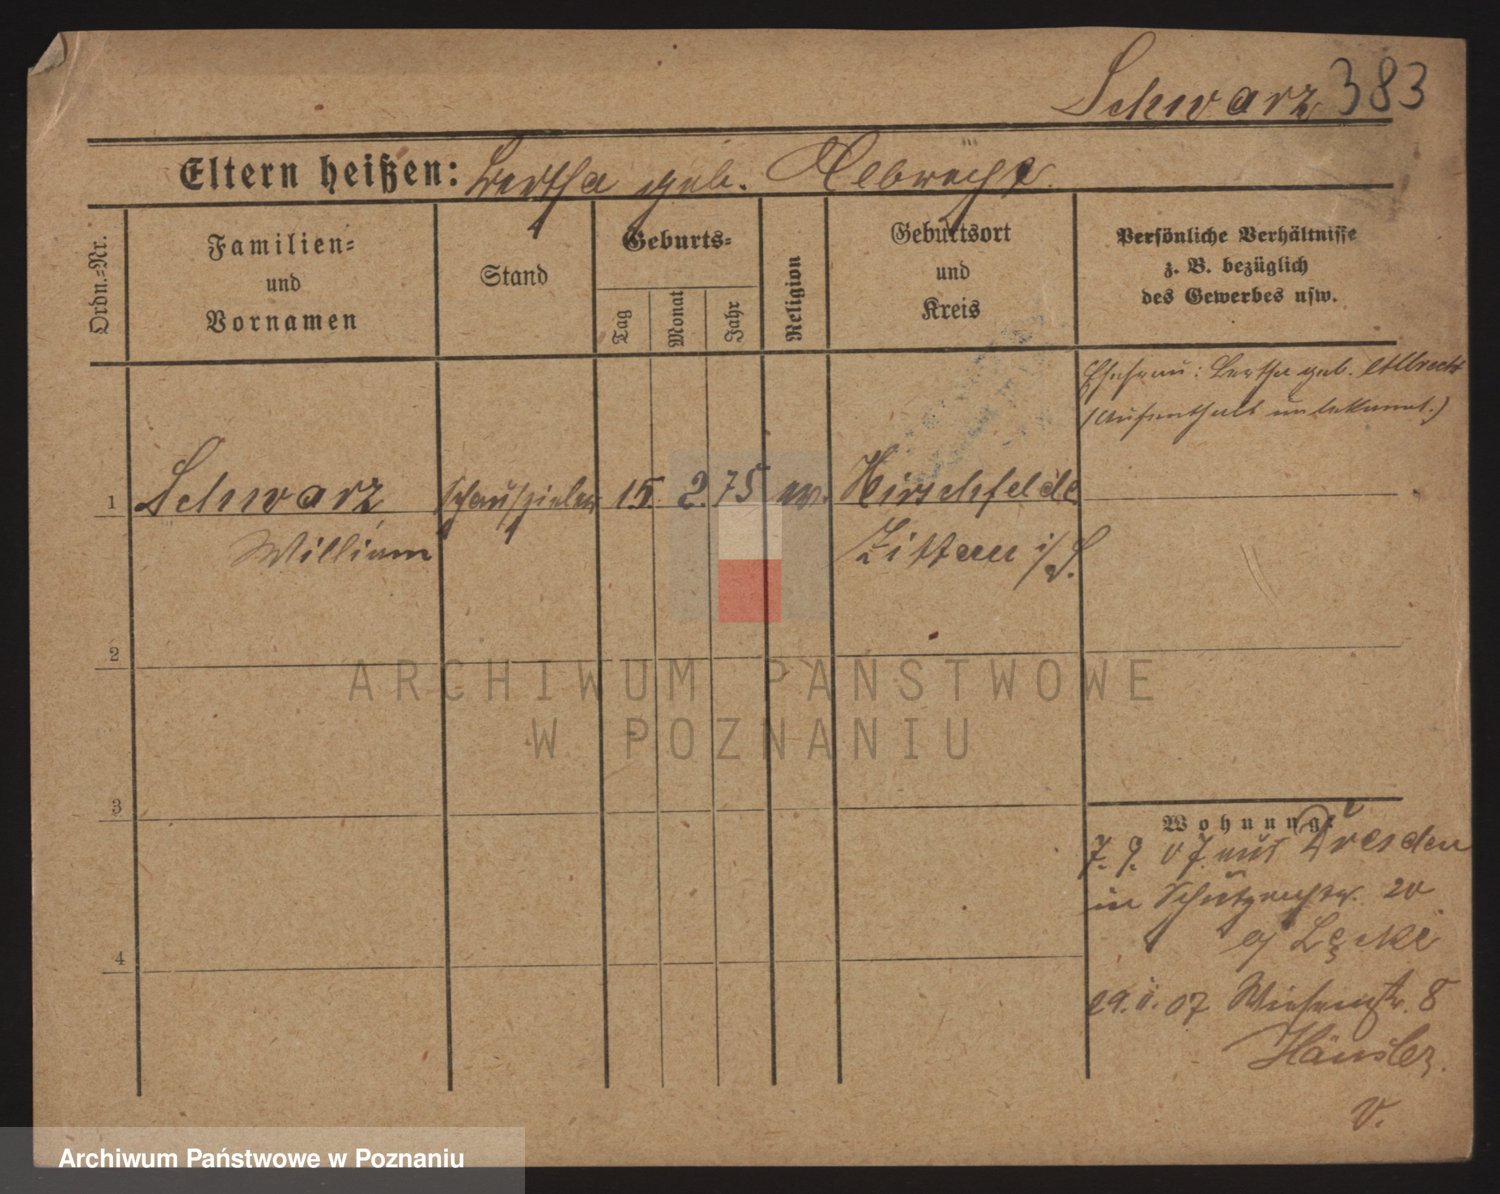 Schwarz 383
Eltern heißen: Bertha geb. Albrecht.
Ordn.=Nr.
Familien=
und
Vornamen
Stand
Geburts=
Tag
Monat
Jahr
Religion
Geburtsort
und
Kreis
Persönliche Verhältnisse
z. B. bezüglich
des Gewerbes usw.
Ehefrau: Bertha geb. Albrecht
(Aufenthalt unbekannt.)
1 Schwarz Schauspieler 15. 2. 75 ev. Hirschfelde
William Zittau i/S.
2
3
4
Wohnung:
7. 9. 07. aus Dresden
in Schützenstr. 20
29. 07 Wiesenstr. 8
Hänsler.
v.
ARCHIWUM PAŃSTWOWE
W POZNANIU
Archiwum Państwowe w Poznaniu